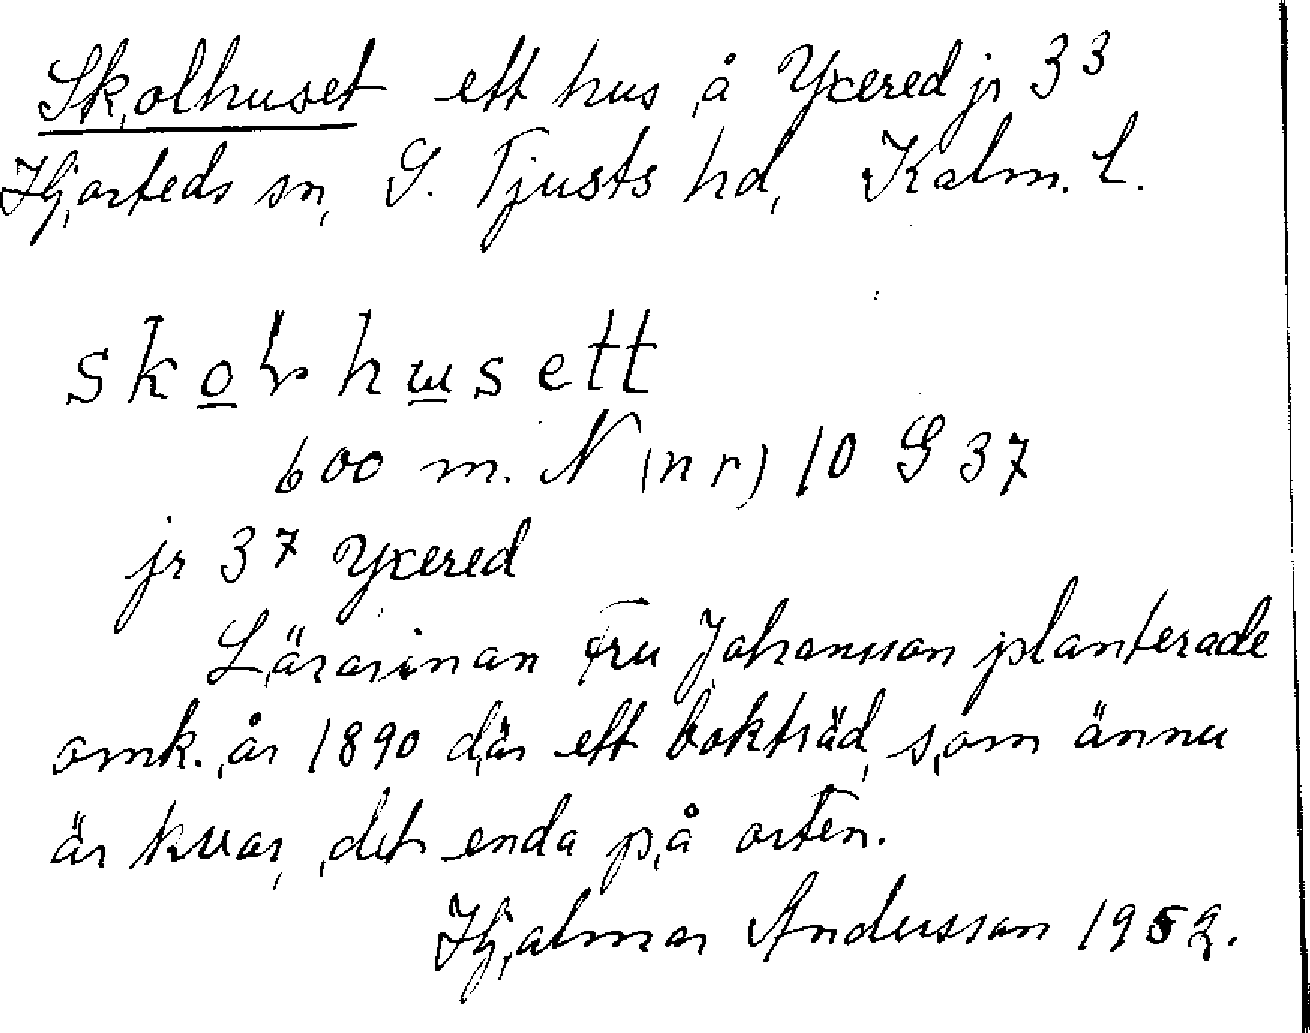 Skolhuset ett hus å Yxered jr 3³
Hjorteds sn, S. Tjusts hd, Kalm. L.
skolhusett
600 m. N (nr) 10 G 37
jr 3⁷ Yxered
Lärarinan Fru Johansson planterade
omk. år 1890 där ett bokträd, som ännu
är kvar, det enda på orten.
Hjalmar Andersson 1952.